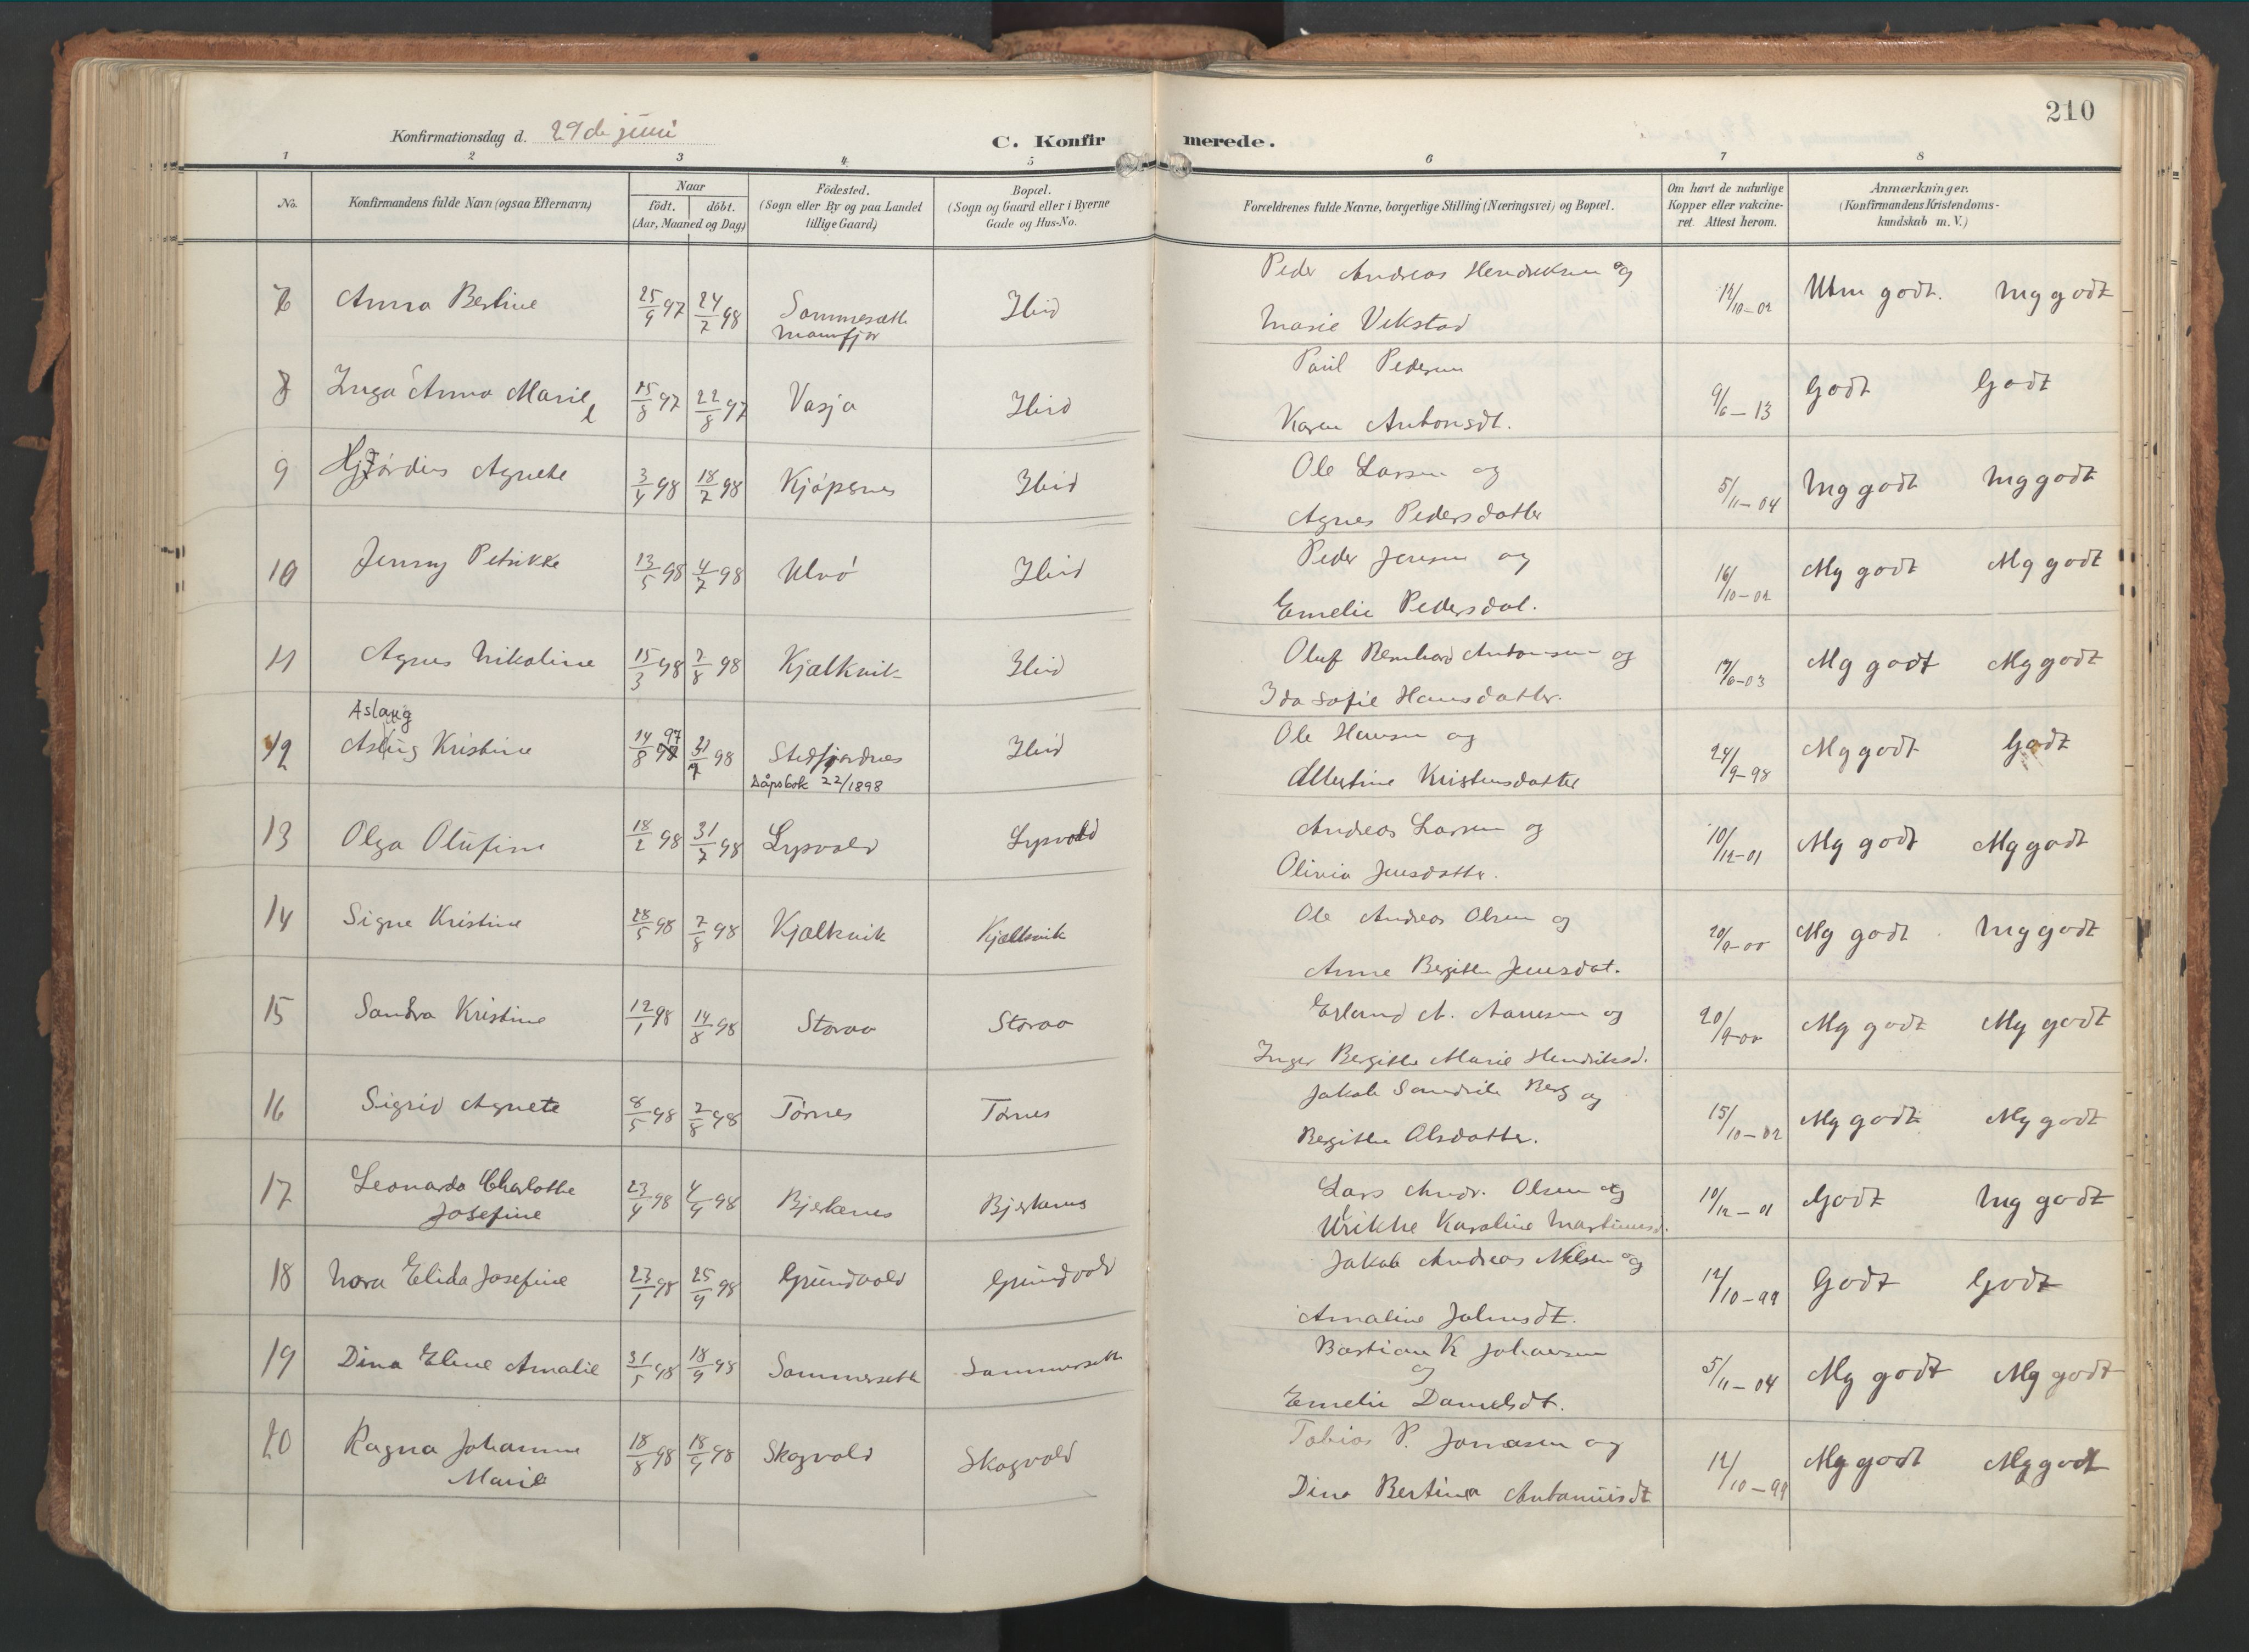 210
Konfirmationsdag d. 29de juni
C. Konfir merede.
1 2 3 4 5 6 7 8
No.
Konfirmandens fulde Navn (ogsaa Efternavn)
Naar
födt. döbt.
(Aar, Maaned og Dag)
Födested.
(Sogn eller By og paa Landet
tillige Gaard)
Bopæl.
(Sogn og Gaard eller i Byerne
Gade og Hus-No.
Forældrenes fulde Navne, borgerlige Stilling (Næringsvei) og Bopæl.
Om havt de naturlige
Kopper eller vakcine-
ret. Attest herom.
Anmærkninger.
(Konfirmandens Kristendoms-
kundskab m. V.)
Anna Bertine 25/9 97 24/7 98 Sommersæth Ibid
Peder Andreas Hendriksen og
Marie Vikstad
12/10-02 Utm godt. Mg godt
8 Inga Anna Marie 15/8 97 22/8 97 Vasja Ibid
Paul Pedersen
Karen Antonsdt.
9/6-13 Godt Godt
9 Hjördis Agnete 3/4 98 18/7 98 Kjöpsnes Ibid
Ole Larsen og
Agnes Pedersdatter
5/11-04 Mg godt Mg godt
10 Jenny Petrikke 13/5 98 4/7 98 Ulvö Ibid
Peder Jensen og
Emelie Pedersdat.
16/10-02 Mg godt Mg godt
11 Agnes Nikoline 15/3 98 7/8 98 Kjælkvik Ibid
Oluf Bernhard Antonsen og
Ida Sofie Hansdatter.
17/6-03 Mg godt Mg godt
Aslaug
12 Aslüg Kristine 14/8 97 31/7 98 Stedfjordnes Ibid
Dåpsbok 22/1898
Ole Hansen og
Albertine Kristensdatter
24/9-98 Mg godt Godt
13 Olga Olufine 18/2 98 31/7 98 Lysvold Lysvold
Andreas Larsen og
Olivia Jensdatter.
10/12-01 Mg godt Mg godt
14 Signe Kristine 28/5 98 7/8 98 Kjælkvik Kjælkvik
Ole Andreas Olsen og
Anne Bergitte Jensdat.
20/9-00 Mg godt Mg godt
15 Sandra Kristine 12/1 98 14/8 98 Storaa Storaa
Erland A. Aanesen og
Inger Bergitte Marie Hendriksd.
20/9-00 Mg godt Mg godt
16 Sigrid Agnete 8/5 98 7/8 98 Törnes Törnes
Jakob Berg og
Bergitte Olsdatter.
15/10-02 Mg godt Mg godt
17 Leonarda Charlotte
Josefine
23/4 98 4/9 98 Bjerkenes Bjerkenes
Lars Andr. Olsen og
Ulrikke Karoline Martinusd.
10/12-01 Godt Mg godt
18 Nora Elida Josefine 23/1 98 25/9 98 Grundvold Grundvold
Jakob Andreas Nilsen og
Amaline Johnsdt.
12/10-99 Godt Godt
19 Dina Eline Amalie 31/5 98 18/9 98 Sommersæth Sommersæth
Bastian K Johansen
og
Emelie Danielsdt.
5/11-04 Mg godt Mg godt
20 Ragna Johanne
Marie
18/8 98 18/9 98 Skogvold Skogvold
Tobias P. Jonasen og
Dina Bertina Antoniusdt
12/10-99 Mg godt Mg godt